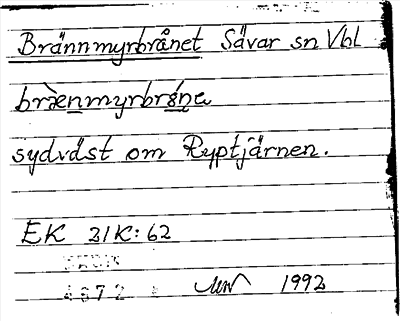 Brännmyrbrånet Sävar sn Vbl
sydväst om Ryptjärnen.
EK 21K:62
4872
1992